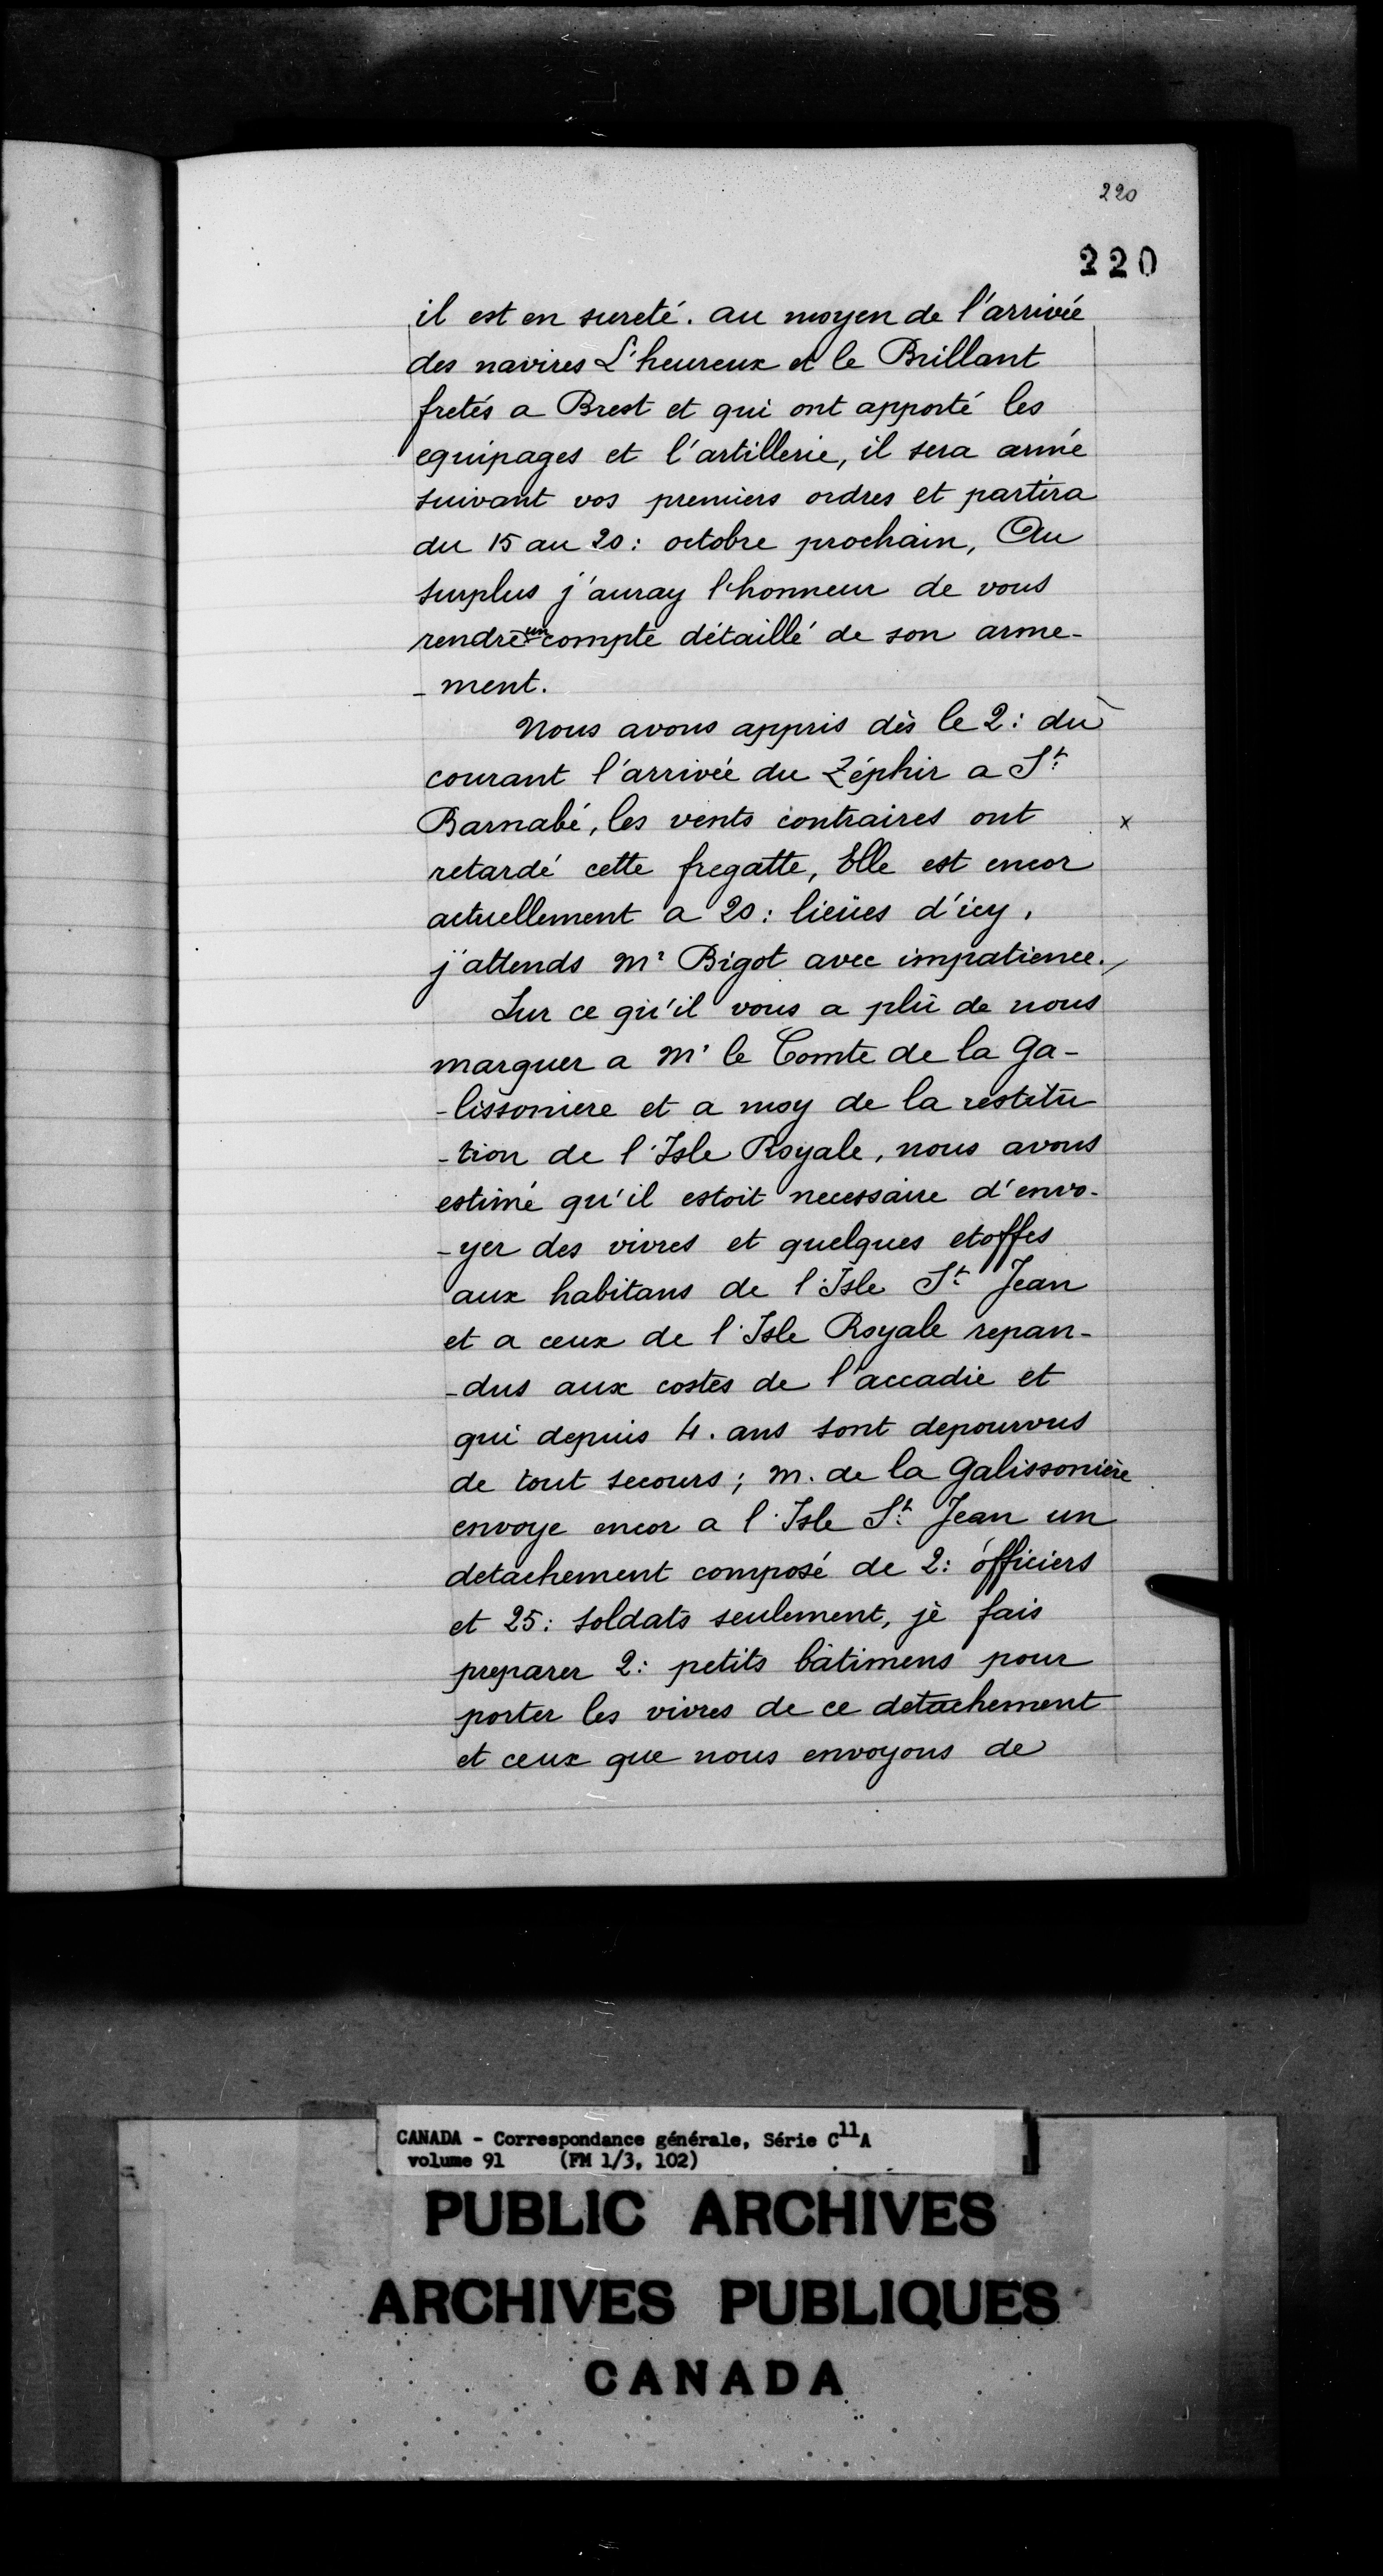 220
220
il est en sureté. au moyen de l'arrivée
des navires L'heureux et le Brillant
fretés a Brest et qui ont apporté les
equipages et l'artillerie, il sera armé
suivant vos premiers ordres et partira
du 15 au 20: octobre prochain, Au
surplus j'auray l'honneur de vous
rendre un compte détaillé de son arme-
-ment.
Nous avons appris dès le 2: du
courant l'arrivée du Zéphir a St
Barnabé, les vents contraires ont x
retardé cette fregatte, Elle est encor
actuellement a 20: lieües d'icy,
j'attends Mr Bigot avec impatience.
Sur ce qu'il vous a plû de nous
marquer a Mr le Comte de la Ga-
-lissoniere et a moy de la restitu
-tion de l'Isle Royale, nous avons
estimé qu'il estoit necessaire d'envo-
-yer des vivres et quelques etoffes
aux habitans de l'Isle St Jean
et a ceux de l'Isle Royale repan-
-dus aux costes de l'accadie et
qui depuis 4. ans sont depourvus
de tout secours; M. de la Galissonière
envoye encor a l'Isle St Jean un
detachement composé de 2: officiers
et 25: soldats seulement, je fais
preparer 2: petits bâtimens pour
porter les vivres de ce detachement
et ceux que nous envoyons de
CANADA - Correspondance générale, Série C11A
volume 91 (FM 1/3, 102)
PUBLIC ARCHIVES
ARCHIVES PUBLIQUES
CANADA